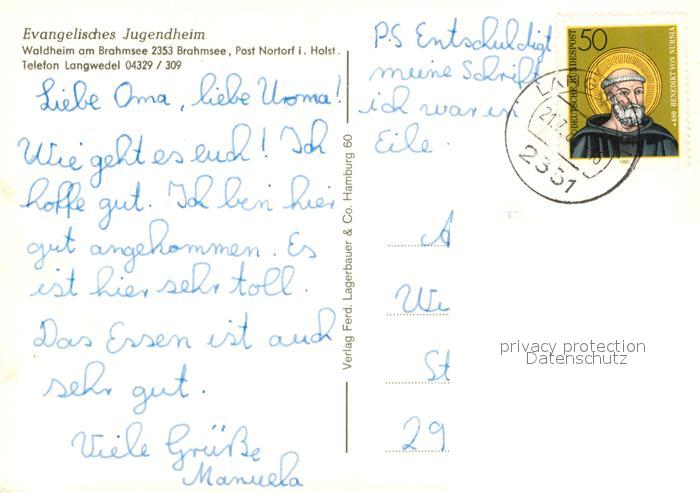 Evangelisches Jugendheim
Waldheim am Brahmsee 2353 Brahmsee, Post Nortorf i. Holst.
Telefon Langwedel 04329 / 309
Liebe Oma, liebe Uroma!
Wie geht es euch! Ich
hoffe gut. Ich bin hier
gut angekommen. Es
ist hier sehr toll.
Das Essen ist auch
sehr gut.
Viele Grüße
Manuela
Verlag Ferd. Lagerbauer & Co. Hamburg 60
P.S Entschuldigt
meine Schrift
ich war in
Eile.
A
We
St
29
50
DEUTSCHE BUNDESPOST
*480 BENEDIKT VON NURSIA
1980
2351
privacy protection
Datenschutz